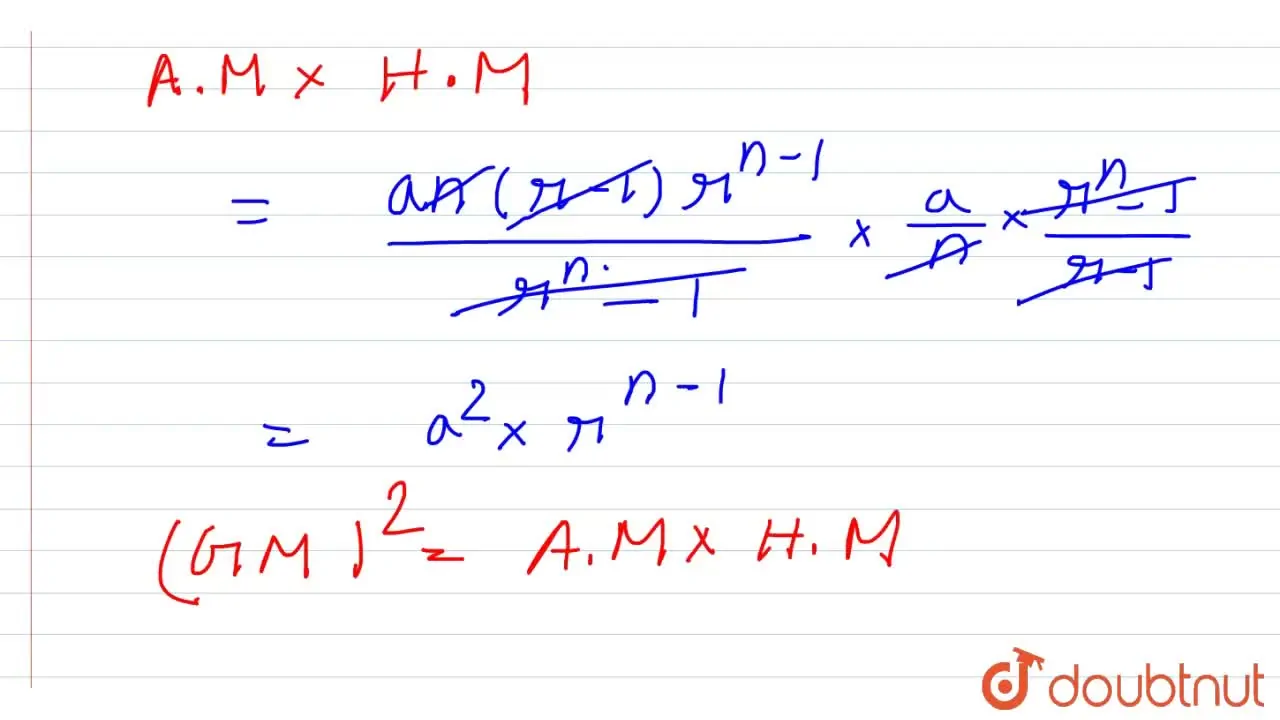 A.M × H.M
= an(r-1) r^{n-1} / r^n - 1 × a/n × r^n - 1 / r - 1
= a^2 × r^{n-1}
(GM)^2 = A.M × H.M
doubtnut